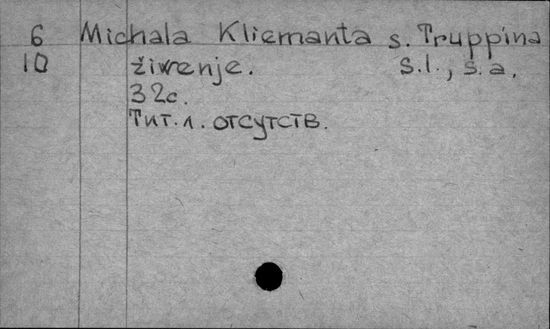 6 Michała Kliemanta s. Truppina
10 žiwenje. s.l., s.a.
32с.
Тит.л. отсутств.